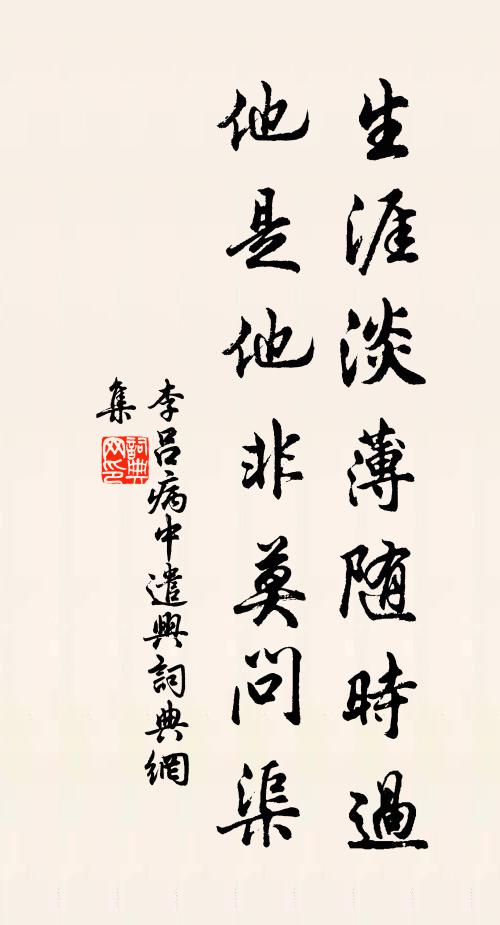 生涯淡薄随時過
他是他非莫問渠
李呂病中遣興詞典網
集
詞典
网印